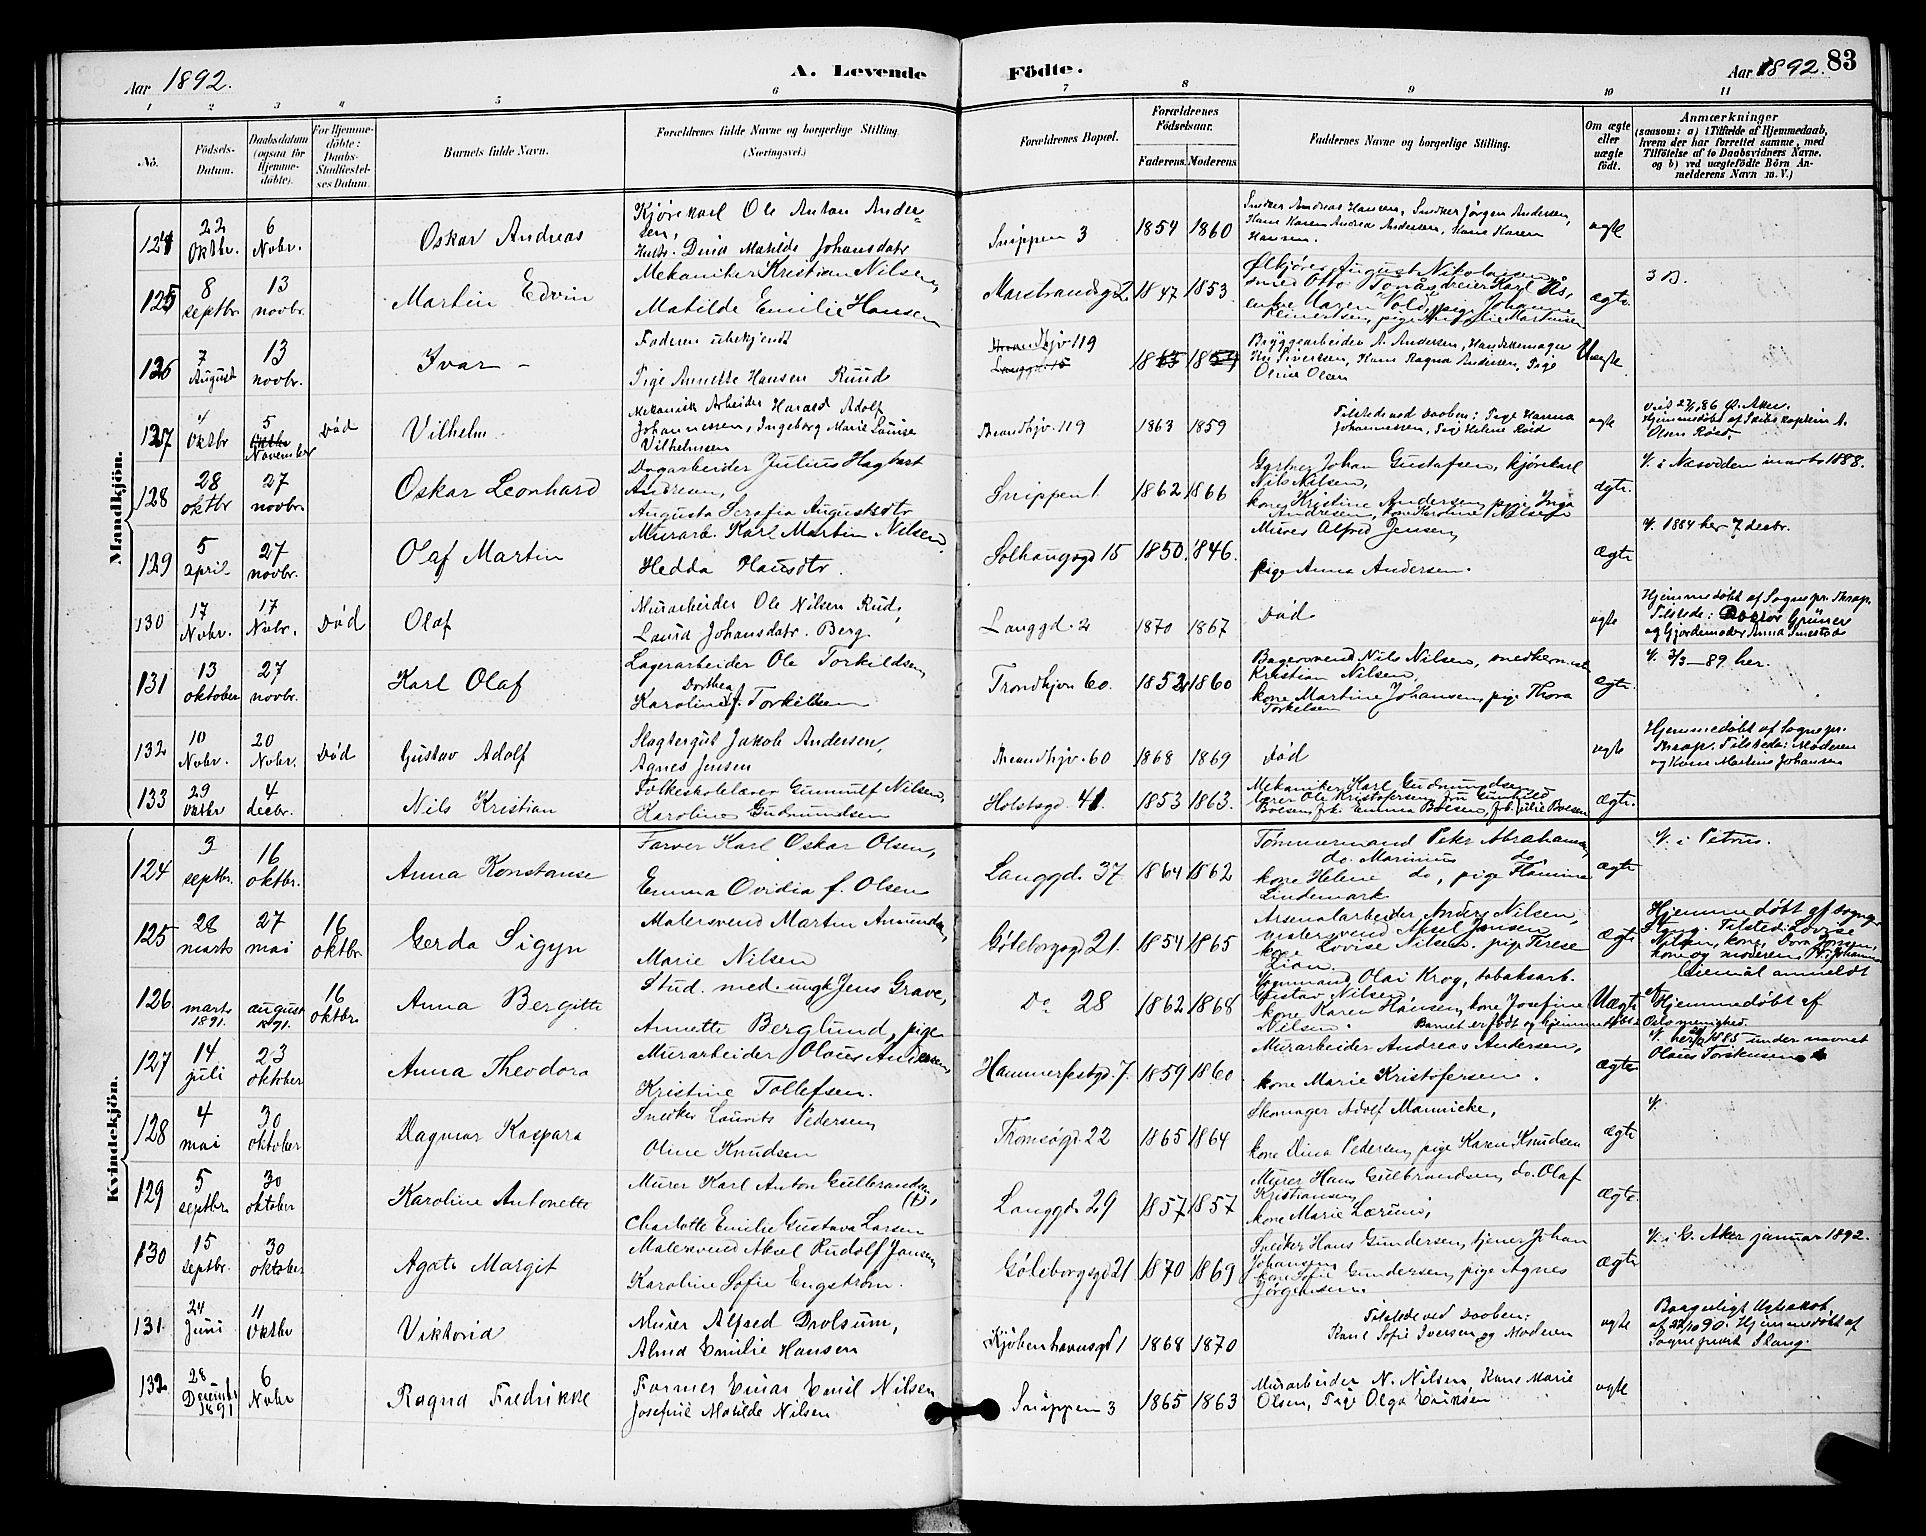 Aar 1892.
A. Levende
Födte.
Aar 1892. 83
1 2 3 4 5 6 7 8 9 10 11
No.
Födsels-
Datum.
Daabsdatum
(ogsaa for
Hjemme-
döbte).
For Hjemme-
döbte:
Daabs-
Stadfæstel-
ses Datum.
Barnets fulde Navn.
Forældrenes fulde Navne og borgerlige Stilling
(Næringsvei.)
Forældrenes Bopæl.
Forældrenes
Födselsaar.
Faderens.
Moderens.
Faddernes Navne og borgerlige Stilling.
Om ægte
eller
uægte
födt.
Anmærkninger
(saasom: a) i Tilfælde af Hjemmedaab,
hvem der har forrettet samme, med
Tilföielse af to Daabsvidners Navne.
og b) ved uægtefödte Börn An-
melderens Navn m. V.)
Mandkjön.
124 22 Oktbr. 6 Novbr.
Oskar Andreas
Kjørekarl Ole Anton Ander-
sen,
Hustr. Matilde Johansdatr
Snippen 3 1854 1860
Snedker Andreas Hansen, Snedker Jørgen Andersen,
Kone Karen Andrea Andersen, Kone Karen
Hansen.
ægte
125 8 septbr. 13 novbr.
Martin Edvin
Mekaniker Kristian Nilsen,
Matilde Emilie Hansen
Marstrandsgd 2. 1847 1853.
Ølkjører August Nikolaisen,
smed Otto
enke Maren Vold, pige Johanne
Reinertsen, pige Martinsen
ægte
3 B.
126 7 August 13 novbr.
Ivar -
Faderen ubekjendt
Pige Annette Hansen Ruud
Trondhjv 119
Langgd. 15
1863 1859
Bryggearbeider A. Andersen, Handskemager
Sivertsen, Kone Ragna Andersen, Pige
Olsen
Uægte
127 4 Oktbr 5 Oktbr November Död
Vilhelm
Mekanisk Arbeider Harald Adolf
Johannessen, Ingeborg Marie Louise
Vilhelmsen
Trondhjv. 119 1863 1859
Tilstede ved Daaben: Pige Hanna
Johannessen, Pige Helene Röed
ægte
Viet 86 Ø. Aker.
Hjemmedöbt af Skibskaptein A.
Olsen Röed.
128 28 oktbr 27 novbr.
Oskar Leonhard
Dagarbeider Julius Hagbart
Andresen,
Augusta Serafia Augustsdtr
Snippen 1 1862 1866
Gartner Johan Gustafsen, kjörekarl
Nils Nilsen,
kone Kristine Andersen, pige Inga
Andresen, kone Karoline Nilsen
ægte.
V. i Næsodden marts 1888.
129 5 april 27 novbr.
Olaf Martin
Murarb. Karl Martin Nilsen.
Hedda Olausdtr.
Solhaugsgd 15 1850. 1846.
Murer Alfred Jensen,
pige Anna Andersen.
Ægte
V. 1884 her 7 decbr.
130 17 Novbr. 17 Novbr. Död
Olaf
Murarbeider Ole Nilsen Rud,
Laura Johansdatr. Berg
Langgd. 2 1870 1867
Död
ægte
Hjemmedöbt af Sognepr.
Tilstede: Doctor Grüner
og Gjordemoder Anna
131 13 oktober 27 novbr.
Karl Olaf
Lagerarbeider Ole Torkildsen,
Dorthea
Karoline f. Torkildsen
Trondhjem 60. 1852 1860
Bagersvend Nils Nilsen, snedker
Kristian Nilsen,
kone Martine Johansen, pige Thora
Torkelsen
Ægte.
V. 3/3-89 her.
132 10 Novbr. 20 Novbr. Död
Gustav Adolf
Slagtergut Jakob Andersen,
Agnes Jensen
Trondhjv. 60 1868 1869
Död
ægte
Hjemmedöbt af Sognepr.
Tilstede: Moderen
og Kone Martine Johansen
133 29 Oktbr 4 decbr.
Nils Kristian
Folkeskolelærer Gunnulf Nilsen,
Karoline Gudmundsen
Holstsgd. 41. 1853 1863.
Mekaniker Karl Gudmundsen
lærer Ole Kristofersen, fru Gunhild
Boesen, frk. Emma Boesen, frk. Julie Boesen
Ægte.
Kvindekjön.
124 3 septbr. 16 oktbr.
Anna Konstanse
Farver Karl Oskar Olsen,
Emma Ovidia f. Olsen
Langgd 37 1864 1862
Tömmermand Peter Abrahamsen,
do. Marinius do.
kone Helene do, pige Flamina
Lindemark
Ægte
V. i Petrus.
125 28 marts 27 mai 16 oktbr
Gerda Sigyn
Malersvend Martin Amundsen,
Marie Nilsen
Göteborgsgd 21. 1854 1865
Arsenalarbeider Anders Nilsen,
malersvend Axel Jansen
kone Lovise Nilsen. pige Terese
Lian.
Ægte
Hjemmedöbt af Sognepr.
Tilsted: Lovise
Nilsen, kone, Dora Jonsen,
kone og moderen. V. i Johannes
126 marts 1891. august 1891. 16 oktbr.
Anna Bergitte
Stud. med. ungk. Jens Grave,
Annette Berglund, pige
Do 28 1862 1868
Olai Krog, tobaksarb.
Gustav Nilsen
kone Karen Hansen, kone Josefine
Nilsen. Barnet er födt og hjemmedöbt
Uægte
Leiemål anmeldt
Hjemmedöbt af
Oslo menighed.
127 14 juli 23 oktober
Anna Theodora
Murarbeider Olaus Andersen,
Kristine Tollefsen.
Hammerfestgd 7. 1859 1860
Murarbeider Andreas Andersen,
kone Marie Kristofersen.
Ægte
V. her 1885 under navnet
Olaus
128 4 mai 30 oktober
Dagmar Kaspara
Snedker Laurits Pedersen,
Oline Knudsen
Tromsögd 22 1865 1864
Skomager Adolf Mannicke,
kone Dina Pedersen, pige Karen Knudsen
Ægte
V.
129 5 septbr. 30 oktober
Karoline Antonette
Murer Karl Anton Gulbrandsen
(†),
Charlotte Emilie Gustava Larsen
Langgd 29 1857 1857
Murer Hans Gulbrandsen, do. Olaf
Kristiansen,
kone Marie
Ægte
130 15 septbr. 30 oktober
Agate Margit
Malersvend Aksel Rudolf Jansen,
Karoline Sofie Engström.
Göteborgsgd 21 1870 1869
Snedker Hans Gundersen, tjener Johan
Johansen
kone Sofie Gundersen, pige Agnes
Jörgensen.
Ægte
V. i G. Aker januar 1892.
131 24 Juni 11 Oktbr
Viktoria
Murer Alfred Drolsum,
Alma Emilie Hansen
Kjöbenhavnsgd 1 1868 1870
Tilstede ved Daaben:
Kone Sofie Iversen og Moderen
ægte
Borgerligt Ægteskab
af 22/10 90. Hjemmedöbt af
Sogneprest Skaug
132 28 Decembr 1891 6 Novbr
Ragna Fredrikke
Former Einar Emil Nilsen
Josefine Matilde Nilsen
Snippen 3 1865 1863
Murarbeider N. Nilsen, Kone Marie
Olsen, Pige Olga Eriksen
ægte